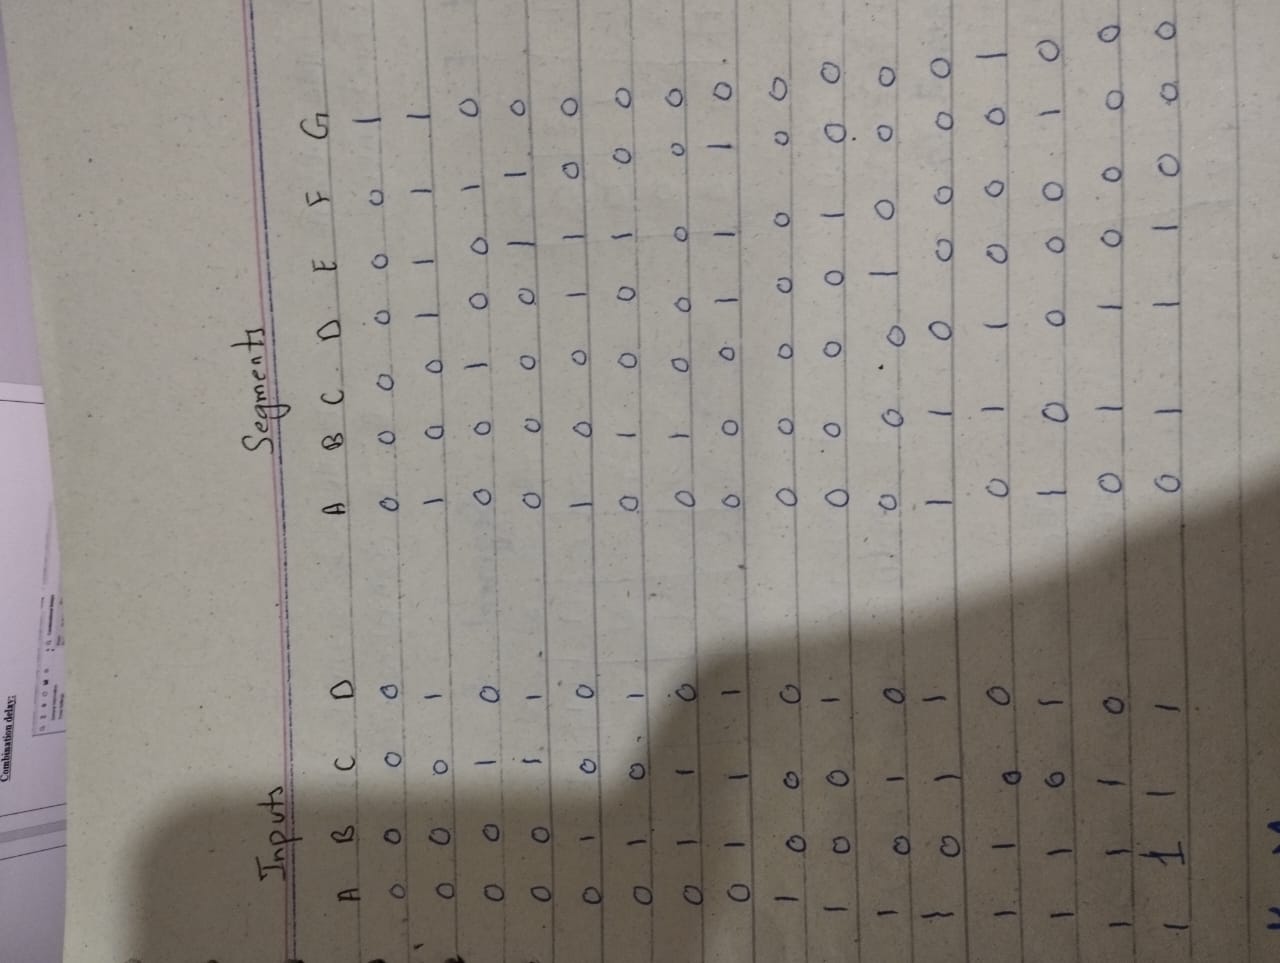 Combination delay:
Inputs Segments
A B C D A B C D E F G
0 0 0 0 0 0 0 0 0 0 1
0 0 0 1 1 0 0 1 1 1 1
0 0 1 0 0 0 1 0 0 1 0
0 0 1 1 0 0 0 0 1 1 0
0 1 0 0 1 0 0 1 1 0 0
0 1 0 1 0 1 0 0 1 0 0
0 1 1 0 0 1 0 0 0 0 0
0 1 1 1 0 0 0 1 1 1 0
1 0 0 0 0 0 0 0 0 0 0
1 0 0 1 0 0 0 0 1 0 0
1 0 1 0 0 0 0 1 0 0 0
1 0 1 1 1 1 0 0 0 0 0
1 1 0 0 0 1 1 0 0 0 1
1 1 0 1 1 0 0 0 0 1 0
1 1 1 0 0 1 1 0 0 0 0
1 1 1 1 0 1 1 1 0 0 0